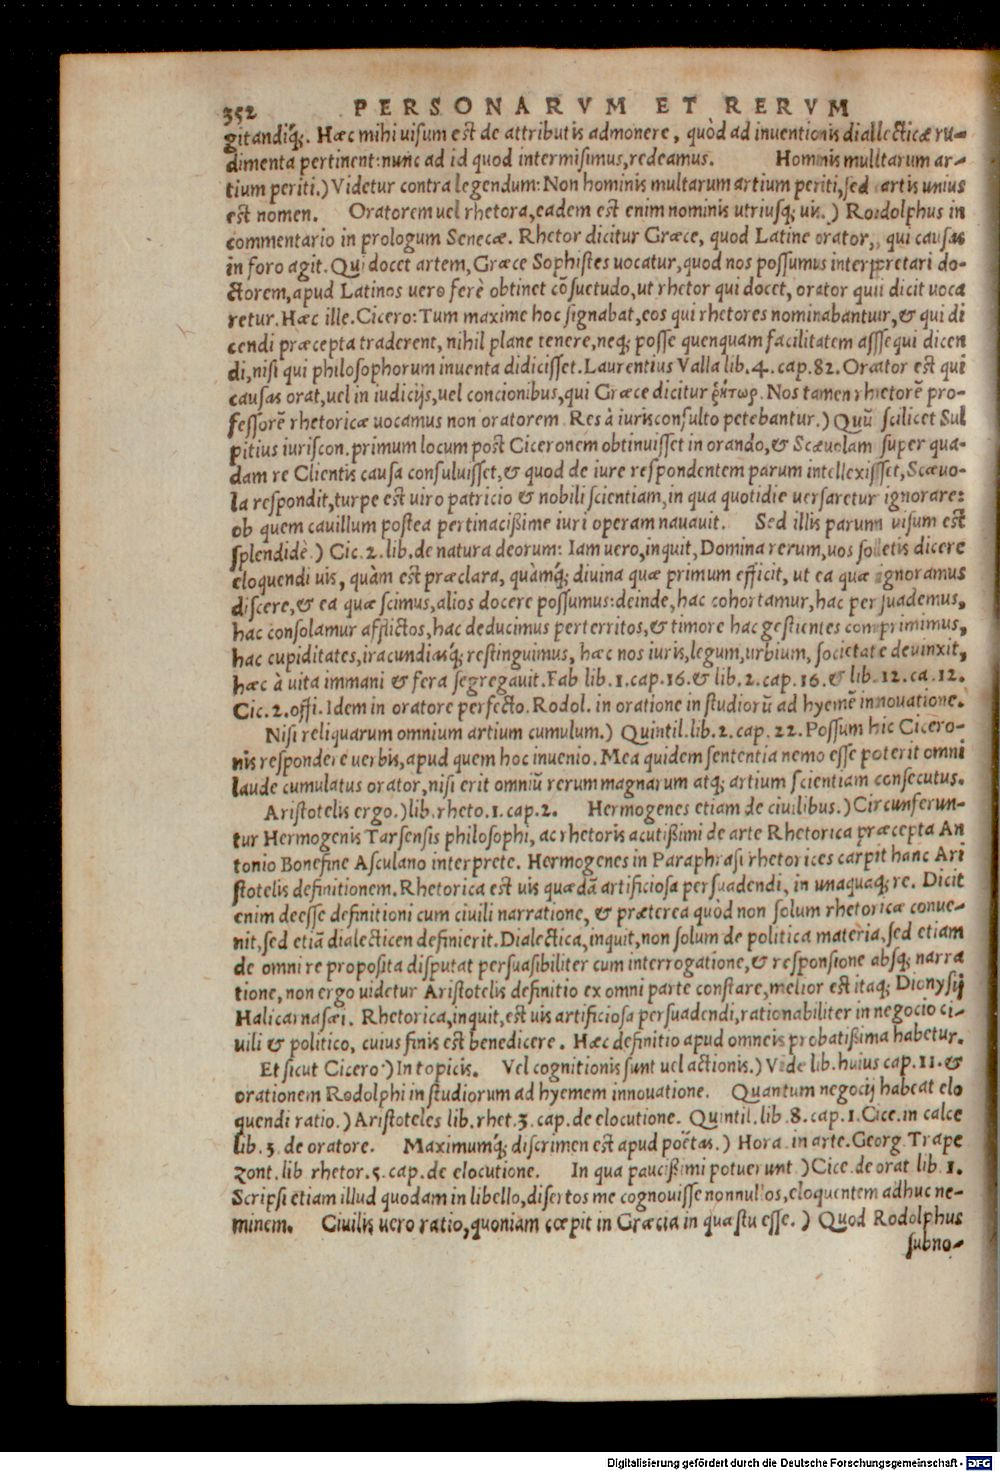 352 PERSONARVM ET RERVM
gitandiq́;. Hæc mihi uisum est de attributis admonere, quòd ad inuentionis diallecticæ ru-
dimenta pertinent: nunc ad id quod intermisimus, redeamus. Hominis multarum ar-
tium periti.) Videtur contra legendum: Non hominis multarum artium periti, sed artis unius
est nomen. Oratorem uel rhetora, eadem est enim nominis utriusq; uis.) Rodolphus in
commentario in prologum Senecæ. Rhetor dicitur Græce, quod Latine orator, qui causas
in foro agit. Qui docet artem, Græce Sophistes uocatur, quod nos possumus interpretari do-
ctorem, apud Latinos uero ferè obtinet cōsuetudo, ut rhetor qui docet, orator qui dicit uoca
retur. Hæc ille. Cicero: Tum maxime hoc signabat, eos qui rhetores nominabantur, & qui di
cendi præcepta traderent, nihil plane tenere, neq; posse quenquam facilitatem assequi dicen
di, nisi qui philosophorum inuenta didicisset. Laurentius Valla lib. 4. cap. 82. Orator est qui
causas orat, uel in iudicijs, uel concionibus, qui Græce dicitur ῥήτωρ. Nos tamen rhetorē pro-
fessorē rhetoricæ uocamus non oratorem Res à iurisconsulto petebantur.) Quū scilicet Sul
pitius iuriscon. primum locum post Ciceronem obtinuisset in orando, & Scæuolam super qua-
dam re Clientis causa consuluisset, & quod de iure respondentem parum intellexisset, Scæuo-
la respondit, turpe est uiro patricio & nobili scientiam, in qua quotidie uersaretur ignorare:
ob quem cauillum postea pertinacißime iuri operam nauauit. Sed illis parum uisum est
splendidè.) Cic. 2. lib. de natura deorum: Iam uero, inquit, Domina rerum, uos soletis dicere
eloquendi uis, quàm est præclara, quàmq́; diuina quæ primum efficit, ut ea quæ ignoramus
discere, & ea quæ scimus, alios docere possumus: deinde, hac cohortamur, hac persuademus,
hac consolamur afflictos, hac deducimus perterritos, & timore hac gestientes comprimimus,
hac cupiditates, iracundiasq́; restinguimus, hæc nos iuris, legum, urbium, societate deuinxit,
hæc à uita immani & fera segregauit. Fab lib. 1. cap. 16. & lib. 2. cap. 16. & lib. 12. ca. 12.
Cic. 2. offi. Idem in oratore perfecto. Rodol. in oratione in studiorū ad hyemē innouatione.
Nisi reliquarum omnium artium cumulum.) Quintil. lib. 2. cap. 22. Possum hic Cicero-
nis respondere uerbis, apud quem hoc inuenio. Mea quidem sententia nemo esse poterit omni
laude cumulatus orator, nisi erit omniū rerum magnarum atq; artium scientiam consecutus.
Aristotelis ergo.) lib. rheto. 1. cap. 2. Hermogenes etiam de ciuilibus.) Circunferun-
tur Hermogenis Tarsensis philosophi, ac rhetoris acutißimi de arte Rhetorica præcepta An
tonio Bonefine Asculano interprete. Hermogenes in Paraphrasi rhetorices carpit hanc Ari
stotelis definitionem. Rhetorica est uis quædā artificiosa persuadendi, in unaquaq; re. Dicit
enim deesse definitioni cum ciuili narratione, & præterea quòd non solum rhetoricæ conue-
nit, sed etiā dialecticen definierit. Dialectica, inquit, non solum de politica materia, sed etiam
de omni re proposita disputat persuasibiliter cum interrogatione, & responsione absq; narra
tione, non ergo uidetur Aristotelis definitio ex omni parte constare, melior est itaq; Dionysij
Halicarnasæi. Rhetorica, inquit, est uis artificiosa persuadendi, rationabiliter in negocio ci-
uili & politico, cuius finis est benedicere. Hæc definitio apud omneis probatißima habetur.
Et sicut Cicero) In topicis. Vel cognitionis sunt uel actionis.) Vide lib. huius cap. 11. &
orationem Rodolphi in studiorum ad hyemem innouatione. Quantum negocij habeat elo
quendi ratio.) Aristoteles lib. rhet. 3. cap. de elocutione. Quintil. lib. 8. cap. 1. Cice. in calce
lib. 3. de oratore. Maximumq́; discrimen est apud poëtas.) Hora. in arte. Georg. Trape
zont. lib rhetor. 5. cap. de elocutione. In qua paucißimi potuerunt.) Cice. de orat lib. 1.
Scripsi etiam illud quodam in libello, disertos me cognouisse nonnullos, eloquentem adhuc ne-
minem. Ciuilis uero ratio, quoniam cœpit in Græcia in quæstu esse.) Quod Rodolphus
subno-
Digitalisierung gefördert durch die Deutsche Forschungsgemeinschaft - DFG